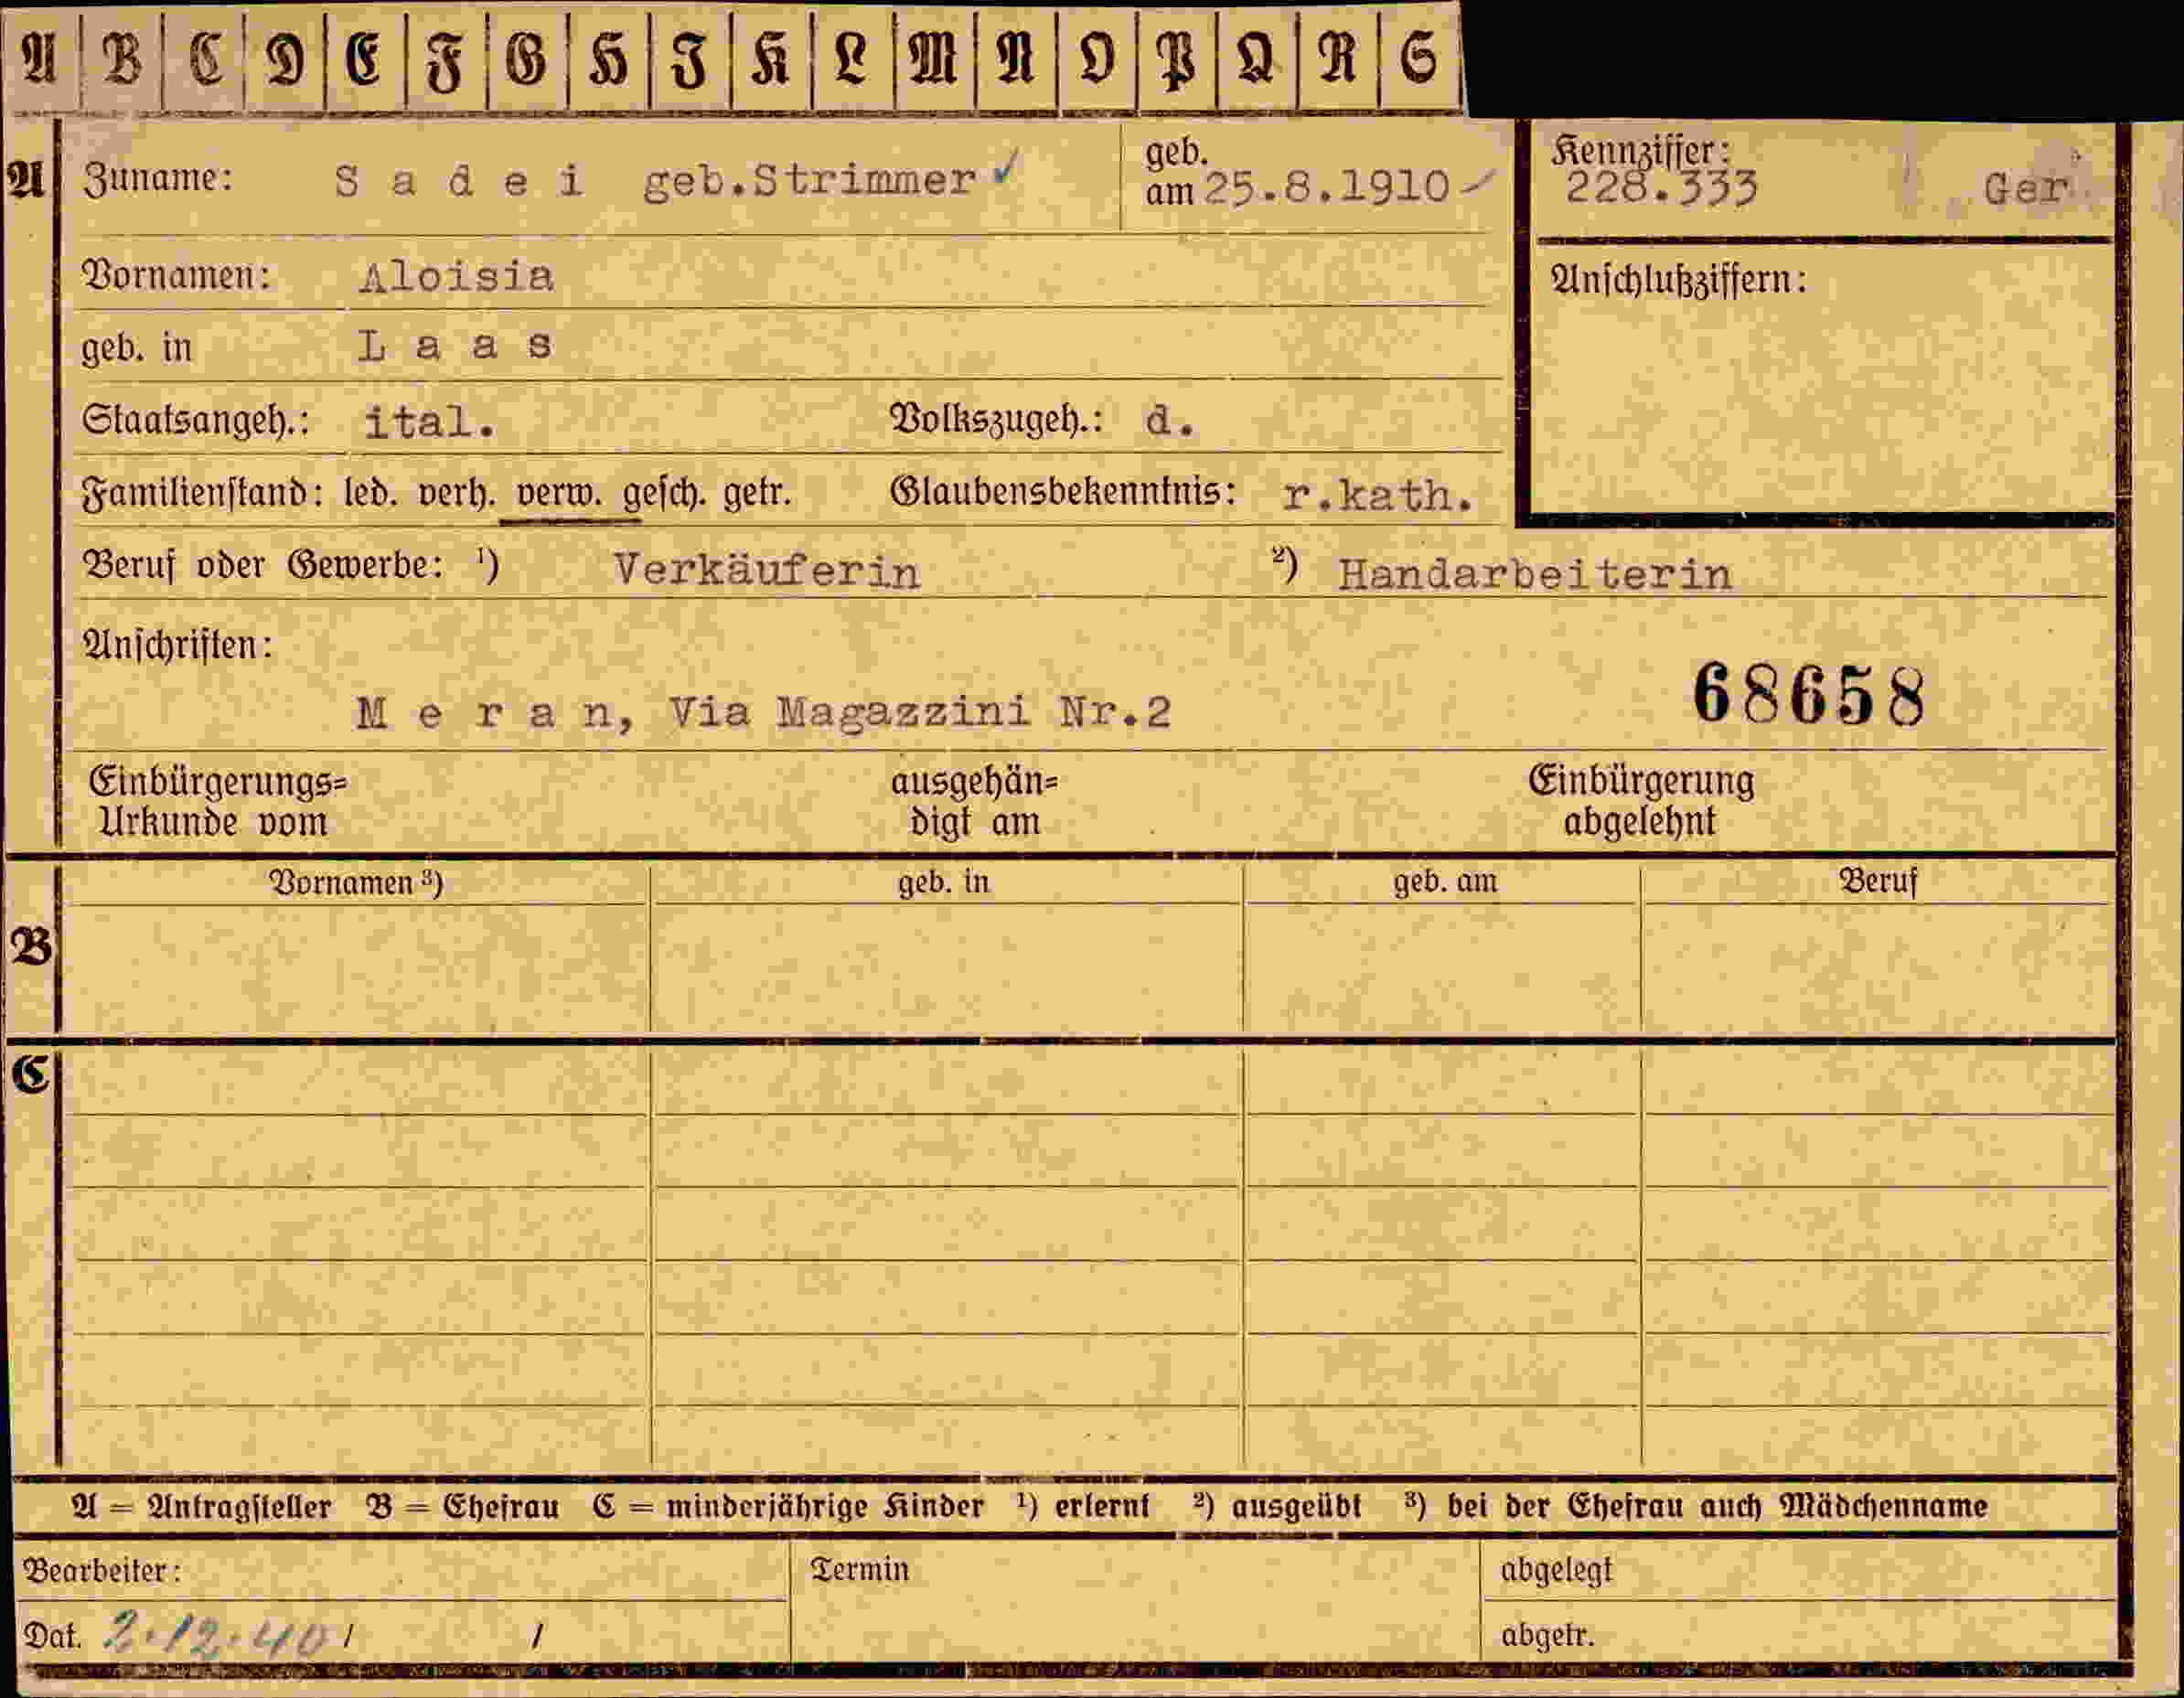 A B C D E F G H I K L M N O P Q R S
A Zuname: S a d e i geb.Strimmer ✓ geb. am 25.8.1910 Kennziffer: 228.333 Ger
Vornamen: Aloisia Anschlußziffern:
geb. in L a a s
Staatsangeh.: ital. Volkszugeh.: d.
Familienstand: led. verh. verw. gesch. getr. Glaubensbekenntnis: r.kath.
Beruf oder Gewerbe: ¹) Verkäuferin ²) Handarbeiterin
Anschriften:
68658
M e r a n, Via Magazzini Nr.2
Einbürgerungs= ausgehän= Einbürgerung
Urkunde vom digt am abgelehnt
Vornamen ³) geb. in geb. am Beruf
B
C
A = Antragsteller B = Ehefrau C = minderjährige Kinder ¹) erlernt ²) ausgeübt ³) bei der Ehefrau auch Mädchenname
Bearbeiter: Termin abgelegt
Dat. 2.12.40 / / abgetr.